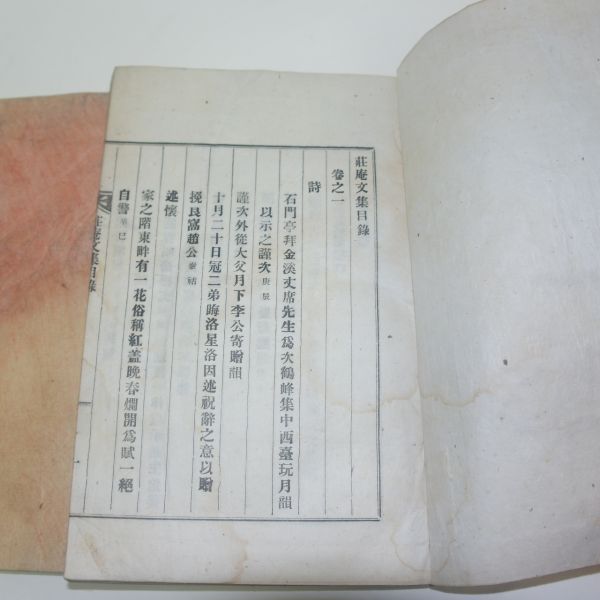 莊庵文集目錄
卷之一
詩
石門亭拜金溪丈席先生爲次鶴峰集中西臺玩月韻
以示之謹次庚辰
謹次外從大父月下李公寄贈韻
十月二十日冠二弟晦洛星洛因述祝辭之意以贈
挽良窩趙公
述懷
家之階東畔有一花俗稱紅蓋晚春爛開爲賦一絕
自警辛巳
莊庵文集目錄